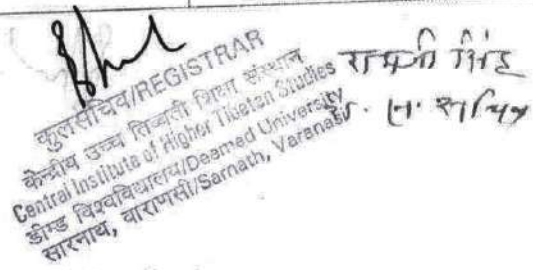 कुलसचिव/REGISTRAR
केन्द्रीय उच्च तिब्बती शिक्षा संस्थान
Central Institute of Higher Tibetan Studies
डीम्ड विश्वविद्यालय/Deamed University
सारनाथ, वाराणसी/Sarnath, Varanasi
रामजी सिंह